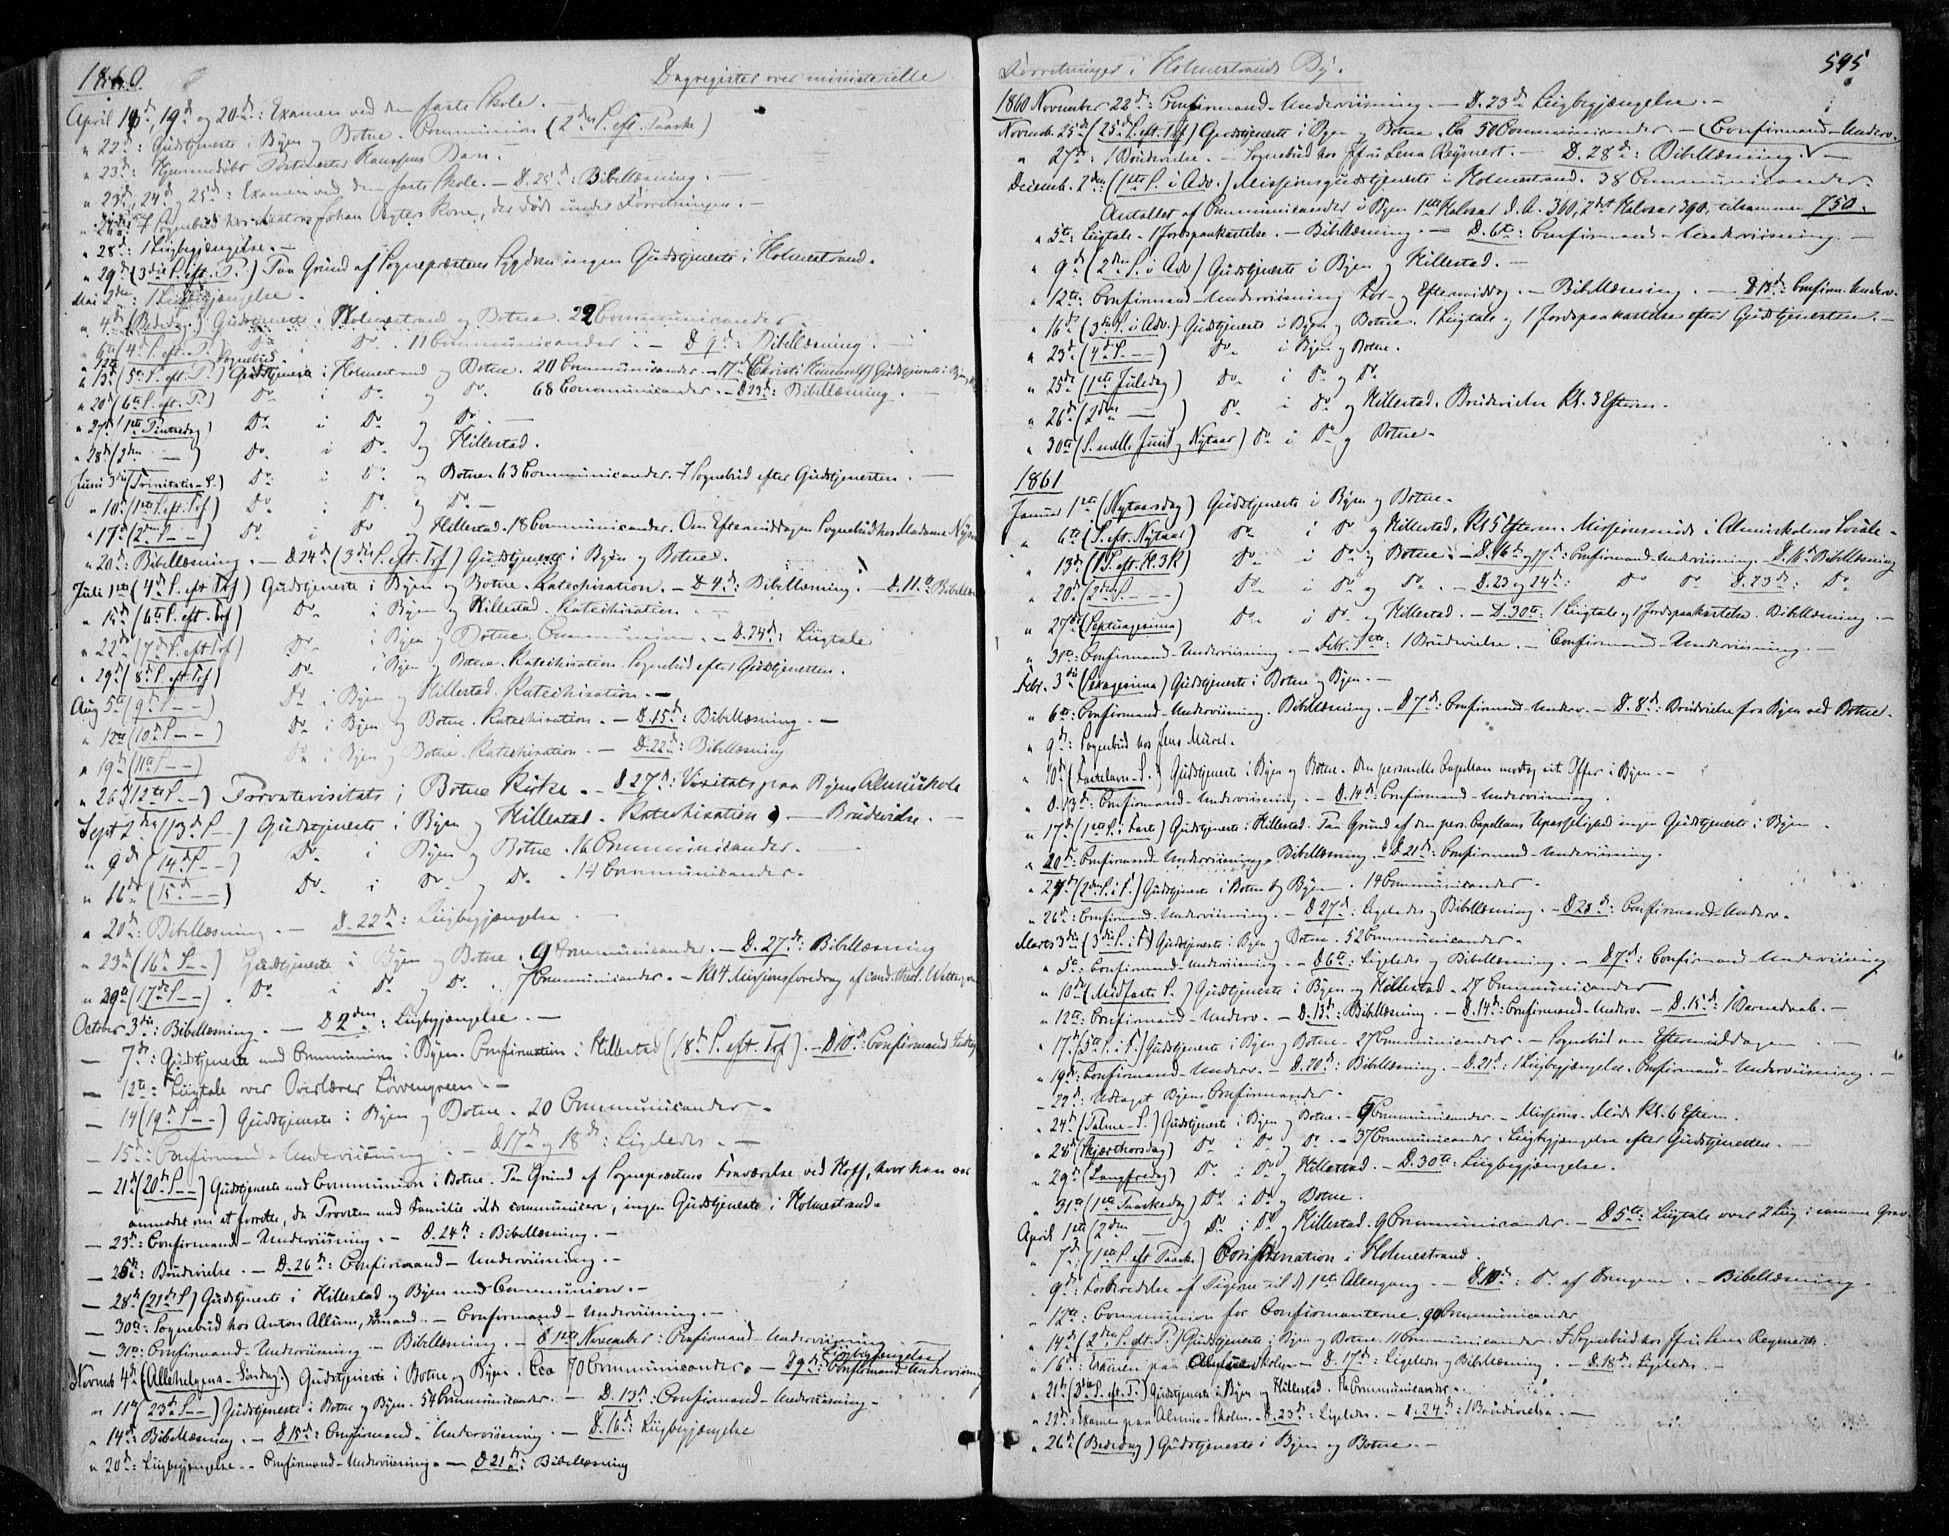 1860. Dagregister over ministerielle
April 18de, 19de og 20de: Examen ved den faste Skole. —
" 22de: Gudstjeneste i Byen og Botne. Communion (2den S. eft. Paaske)
" 23de: Hjemmedøbt Postmester Hanssens Barn. —
" 23de, 24de og 25de: Examen ved den faste Skole. — D. 25de: Bibellæsning. —
Sognebud hos Johan Konе, der døde under Forretningen. —
" 28de: 1 Liigbegjængelse. —
" 29de (3die S. eft. P.) Paa Grund af Sognepræstens Sygdom ingen Gudstjeneste i Holmestrand.
Mai 2den: 1 Liigbegjængelse.
" 4de (Bededag) Gudstjeneste i Holmestrand og Botne. 22 Communicander
" 6te (4de S. eft. P.) Do i Do. 11 Communicander. — D 9de: Bibellæsning. —
" 12te Sognebud.
" 13de (5te S. eft. P.) Gudstjeneste i Holmestrand og Botne. 20 Communicander. — 17de (Christi Himmelf.) Gudstjeneste i Byen
" 20de (6te S. eft. P.) Do i Do og Do. 68 Communicander. — D 23de: Bibellæsning. —
" 27de (1ste Pintsedag) Do i Do og Do —
" 28de (2den —) Do i Do og Hillestad.
Juni 3die (Trinitatis-S.) Do i Do " Botne. 63 Communicander. 7 Sognebud efter Gudstjenesten. —
" 10de (1ste S. eft. Tref) Do i Do og Do —
" 17de (2den S. — —) Do i Do og Hillestad. 18 Communicander. Om Eftermiddagen Sognebud hos Madame
" 20de: Bibellæsning. — D. 24de (3die S. eft. Tref) Gudstjeneste i Byen og Botne.
Juli 1ste (4de S. eft Tref) Gudstjeneste i Byen og Botne. Katechisation. — D 4de: Bibellæsning. — D. 11te Bibellæsn
" 15de (6te S. eft. Tref) Do i Byen og Hillestad. Katechisation.
" 22de (7de S. eft Tref) Do i Byen og Botne. Communion. — D. 24de: Liigtale
" 29de (8de S. eft. Tref) Do i Byen og Botne. Katechisation. Sognebud efter Gudstjenesten.
Aug 5te (9de S. — —) Do i Byen og Hillestad. Katechisation. —
" 12te (10de S. — —) Do i Byen og Botne. Katechisation. — D. 15de: Bibellæsning. —
" 19de (11te S. — —) Do i Byen og Botne. Katechisation. — D. 22de: Bibellæsning
" 26de (12te S. — —) Provstevisitats i Botne Kirke. — D 27de: Visitats paa Byens Almueskole
Sept 2den (13de S. —) Gudstjeneste i Byen og Hillestad. Katechisation. — Brudevielse. —
" 9de (14de S. — —) Do i Byen og Botne. 16 Communicander. —
" 16de (15de — —) Do i Do og Do. 14 Communicander.
" 20de: Bibellæsning. — D. 22de: Liigbegjængelse.
" 23de (16de S. — —) Gudstjeneste i Byen og Botne. 9 Communicander. — D. 27de: Bibellæsning
" 29de (17de S. — —) Do i Do og Do. 7 Communicander. — Kl 4 Missjonsforedrag af cand. theol.
October 3die: Bibellæsning. — D 2den: Liigbegjængelse. —
— 7de: Gudstjeneste med Communion i Byen. Confirmation i Hillestad (18de S. eft. Tref). — D 10de: Confirmand
— 12te: Liigtale over Overlærer Løvengreen. —
— 14 (19de S. — —) Gudstjeneste i Byen og Botne. 20 Communicander.
— 15de: Confirmand-Underviisning. — D 17de og 18de: Ligeledes. —
— 21de (20de S. — —) Gudstjeneste med Communion i Botne. Paa Grund af Sognepræstens Fraværelse ved Hoff, hvor han var
anmodet om at forrette, da Provsten med Familie vilde communicere, ingen Gudstjeneste i Holmestrand.
— 23de: Confirmand-Underviisning. — D. 24de: Bibellæsning. —
— 25de: Brudevielse. — D. 26de: Confirmand-Underviisning. —
— 28de (21de S) Gudstjeneste i Hillestad og Byen med Communion. —
— 30te: Sognebud hos Anton Allum, Sømand. — Confirmand-Underviisning. —
— 31te: Confirmand-Underviisning — Bibellæsning. — D 1ste November: Confirmand-Underviisning
Novemb. 4de (Allehelgens-Søndag.) Gudstjeneste i Botne og Byen. Cca 70 Communicander. — D 9de: Liigbegjængelse Confirmand-Underviisning
" 11te (23de S. — —) Gudstjeneste i Botne og Byen. 54 Communicander. — D. 13de: Confirmand-Underviisning.
" 14de: Bibellæsning. — D. 15de: Confirmand-Underviisning. — D. 16de: Liigbegjængelse
" 20de: Liigbegjængelse. Confirmand-Underviisning. — D 21de: Bibellæsning
Forretninger i Holmestrands By. 595
1860 November 22de: Confirmand-Underviisning. — D. 23de Liigbegjængelse. —
Novemb. 25de (25de S. eft. Tref) Gudstjeneste i Byen og Botne. Ca 50 Communicander. — Confirmand-Underv.
" 27de: 1 Brudevielse. — Sognebud hos Jfru Lena Reymert. — D. 28de: Bibellæsning. —
Decemb. 2den (1ste S. i Adv.) Missjonsgudstjeneste i Holmestrand. 38 Communicander.
Antallet af Communicander i Byen 1ste Halvaar d. A. 360, 2det Halvaar 390, tilsammen 750.
" 5te: Liigtale. 1 Jordspaakastelse. — Bibellæsning. — D. 6te: Confirmand-Underviisning. —
" 9de (2den S. i Adv) Gudstjeneste i Byen og Hillestad. —
" 12te: Confirmand-Underviisning For- og Eftermiddag. — Bibellæsning. — D 13de: Confirm. Underv.
" 16de (3die S. i Adv.) Gudstjeneste i Byen og Botne. 1 Liigtale og 1 Jordspaakastelse efter Gudstjenesten. —
" 23de (4de S. — —) Do i Byen og Botne.
" 25de (1ste Juledag) Do i Do og Do.
" 26de (2den —) Do i Do og Hillestad. Brudevielse Kl. 3 Efterm.
" 30te (S. mell. Juul og Nytaar) Do i Do og Botne.
1861
Januar 1ste (Nytaarsdag) Gudstjeneste i Byen og Botne.
" 6te (S. eft. Nytaar) Do i Do og Hillestad. Kl 5 Efterm. Missjonsmøde i Almueskolens Locale.
" 13de (1 S. eft. H. 3 K) Do i Do og Botne. — D. 16de og 17de: Confirmand-Underviisning. — D. 16de Bibellæsning
" 20de (2den S. — —) Do i Do og Do. — D. 23 og 24de: Do Do D. 23de: Do
" 27de (Septuagesima) Do i Do og Hillestad. — D. 30te: 1 Liigtale og 1 Jordspaakastelse. Bibellæsning. —
" 31te: Confirmand-Underviisning. — Febr. 1ste: 1 Brudevielse. — Confirmand-Underviisning. —
Febr. 3die (Sexagesima) Gudstjeneste i Botne og Byen. —
" 6te: Confirmand-Underviisning. Bibellæsning. — D 7de: Confirmand-Underv. — D. 8de: Brudevielse fra Byen ved Botne.
" 9de: Sognebud hos Jens Mürel.
" 10de (Fastelavn-S.) Gudstjeneste i Byen og Botne. Den personelle Capellan modtog sit Offer i Byen. —
" D. 13de: Confirmand-Underviisning. — D. 14de: Confirmand-Underviisning.
" 17de (1ste S. i Faste) Gudstjeneste i Hillestad. Paa Grund af den pers. Capellans Upasselighed ingen Gudstjeneste i Byen.
" 20de: Confirmand-Underviisning. Bibellæsning. D. 21de: Confirmand-Underviisning.
" 24de (2den S. i F.) Gudstjeneste i Botne og Byen. 14 Communicander.
" 26de: Confirmand-Underviisning. — D 27de: Ligeledes og Bibellæsning. — D 28de: Confirmand-Underv.
Marts 3die (3die S. i F.) Gudstjeneste i Byen og Botne. 52 Communicander.
" 5te: Confirmand-Underviisning. — D 6te: Ligeledes og Bibellæsning. — D. 7de: Confirmand-Underviisning
" 10de (Midfaste S.) Gudstjeneste i Byen og Hillestad. 27 Communicander
" 12te: Confirmand-Underv. — D. 13de: Bibellæsning. — D. 14de: Confirmand-Underv. — D. 15de: 1 Barnedaab. —
" 17de (5te S. i F.) Gudstjeneste i Byen og Botne. 27 Communicander. — Sognebud om Eftermiddagen. —
" 19de: Confirmand-Underv. — D. 20de: Bibellæsning. — D. 21de: 1 Liigbegjængelse. Confirmand-Underviisning. —
— 22de: Udtaget Byens Confirmander. —
" 24de (Palme-S.) Gudstjeneste i Byen og Botne. — 9 Communicander. — Missions-Møde Kl. 6 Efterm.
" 28de (Skjærthorsdag) Do i Do og Do. — 37 Communicander. Liigbegjængelse efter Gudstjenesten. —
" 29de (Langfredag) Do i Do og Hillestad. — D. 30te: Liigbegjængelse.
" 31te (1ste Paaskedag) Do i Do og Botne.
April 1ste (2den —) Do i Do og Hillestad. 9 Communicander. — D 5te: Liigtale over 2 Liig i samme Grav.
" 7de (1ste S. eft Paaske) Confirmation i Holmestrand.
" 9de: Forberedelse af Pigerne til d. 1ste Altergang. — D. 10de: Do af Drengene. — Bibellæsning.
" 12te: Communion for Confirmanterne. 90 Communicander
" 14de (2den S. eft. P.) Gudstjeneste i Byen og Botne. 11 Communicander. 1 Sognebud hos Jfru Lena Reymert.
" 16de: Examen paa Almue-Skolen. — D. 17de: Ligeledes og Bibellæsning. — D. 18de: Ligeledes. —
" 21de (3die S. eft. P.) Gudstjeneste i Byen og Hillestad. 16 Communicander.
" 22de: Examen paa Almue-Skolen. — D. 23de: Ligeledes. — D. 24de: 1 Brudevielse. —
" 26de (Bededag) Gudstjeneste i Byen og Botne. —